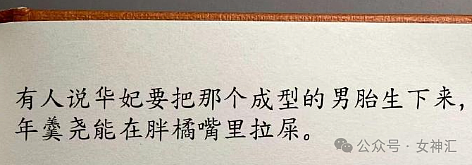 有人说华妃要把那个成型的男胎生下来,
年羹尧能在胖橘嘴里拉屎。
公众号·女神汇